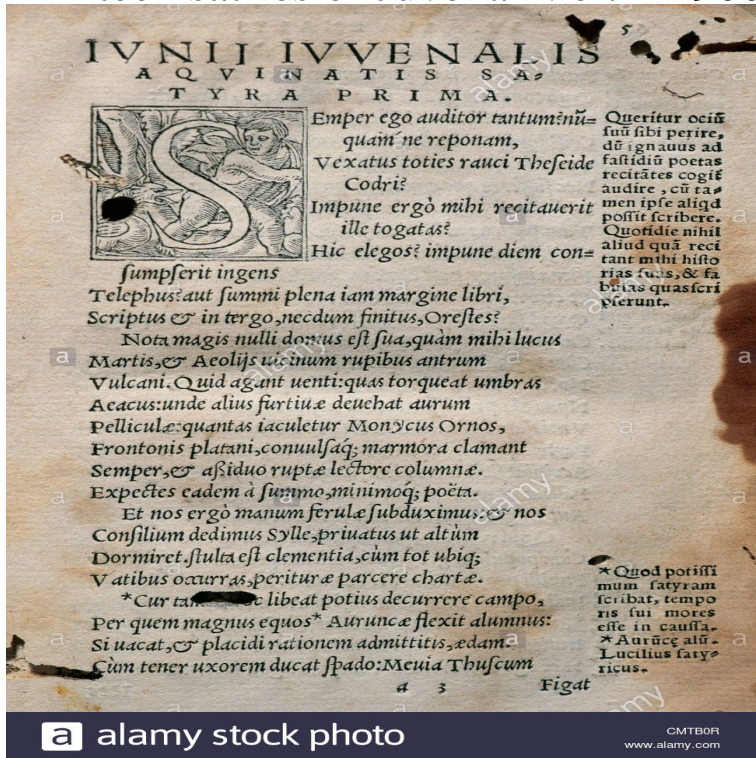 5
IVNII IVVENALIS
AQVINATIS SA-
TYRA PRIMA.
SEmper ego auditor tantum? nū=
quam´ne reponam,
Vexatus toties rauci Theſeide
Codri?
Impune ergò mihi recitauerit
ille togatas?
Hic elegos? impune diem con=
ſumpſerit ingens
Telephus? aut ſummi plena iam margine libri,
Scriptus & in tergo, necdum finitus, Oreſtes?
Nota magis nulli domus eſt ſua, quàm mihi lucus
Martis, & Aeolijs uicinum rupibus antrum
Vulcani. Quid agant uenti: quas torqueat umbras
Aeacus: unde alius furtiuæ deuehat aurum
Pelliculæ: quantas iaculetur Monycus Ornos,
Frontonis platani, conuulſaq́; marmora clamant
Semper, & aßiduo ruptæ lectore columnæ.
Expectes eadem à ſummo, minimoq́; poëta.
Et nos ergò manum ferulæ ſubduximus: & nos
Conſilium dedimus Syllę, priuatus ut altùm
Dormiret. ſtulta eſt clementia, cùm tot ubiq;
Vatibus occurras, perituræ parcere chartæ.
*Cur libeat potius decurrere campo,
Per quem magnus equos* Auruncæ flexit alumnus:
Si uacat, & placidi rationem admittitis, ædam.
Cùm tener uxorem ducat ſpado: Meuia Thuſcum
a 3 Figat
Queritur ociū
ſuū ſibi perire,
dū ignauus ad
faſtidiū poetas
recitātes cogit̃
audire, cū ta-
men ipſe aliqd
poſſit ſcribere.
Quotidie nihil
aliud quā reci
tant mihi hiſto
rias ſuas, & fa
bulas quas ſcri
pſerunt.
*Quod potiſſi
mum ſatyram
ſcribat, tempo
ris ſui mores
eſſe in cauſſa.
*Aurūcę alū.
Lucilius ſaty-
ricus.
a alamy stock photo
CMTB0R
www.alamy.com